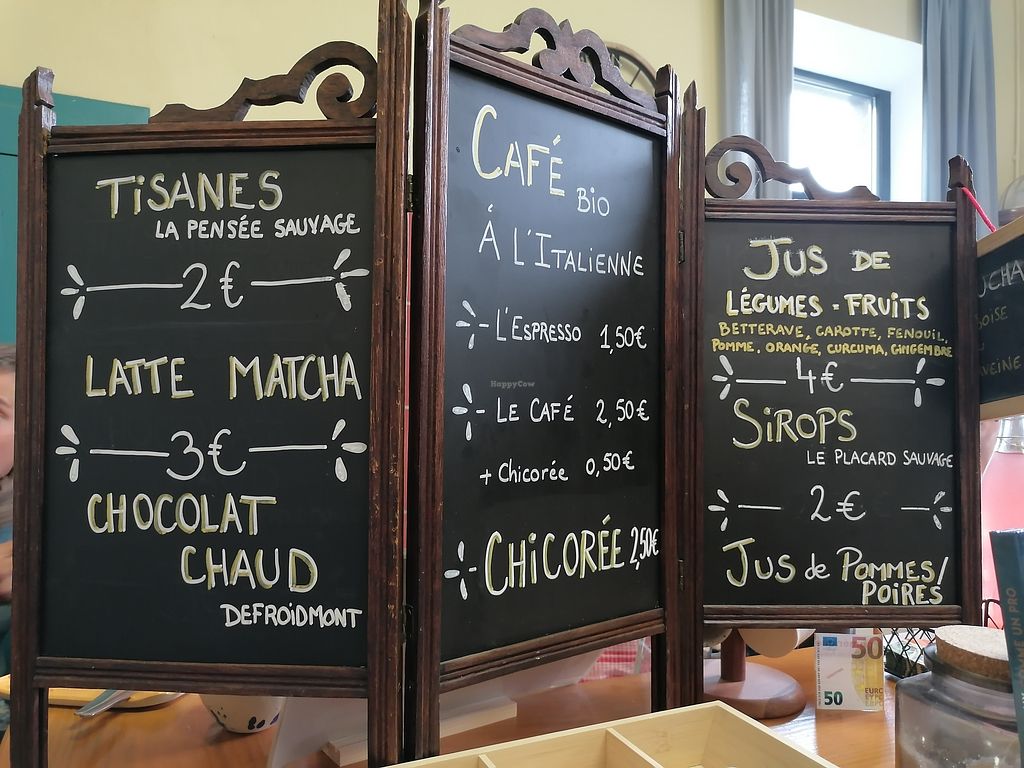 TISANES
LA PENSÉE SAUVAGE
2€
LATTE MATCHA
3€
CHOCOLAT
CHAUD
DEFROIDMONT
CAFÉ BIO
À L'ITALIENNE
L'ESPRESSO 1,50€
LE CAFÉ 2,50€
+ Chicorée 0,50€
CHICORÉE 2,50€
JUS DE
LÉGUMES - FRUITS
BETTERAVE, CAROTTE, FENOUIL,
POMME, ORANGE, CURCUMA, GINGEMBRE
4€
SIROPS
LE PLACARD SAUVAGE
2€
JUS de POMMES/
POIRES
HappyCow
50
50
EURO